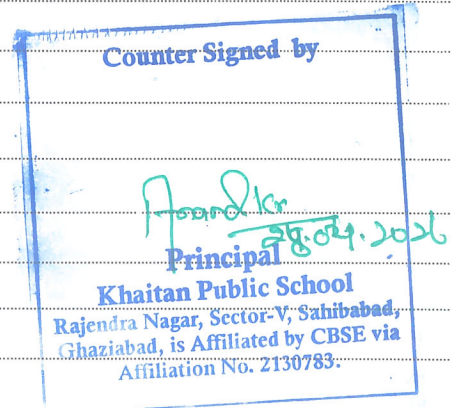 Counter Signed by
Anand Kr
.04.2026
Principal
Khaitan Public School
Rajendra Nagar, Sector-V, Sahibabad,
Ghaziabad, is Affiliated by CBSE via
Affiliation No. 2130783.